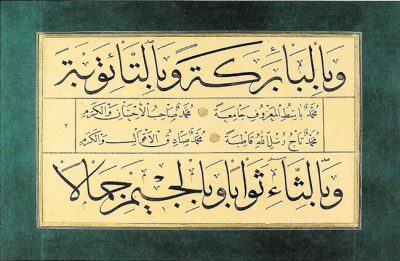 وَبِالْبَاءِ بَرَكَةً وَبِالتَّاءِ تَوْبَةً
مُحَمَّدٌ بَاسِطُ الْمَعْرُوفِ جَامِعَةً مُحَمَّدٌ صَاحِبُ الْإِحْسَانِ وَالْكَرَمِ
مُحَمَّدٌ تَاجُ رُسْلِ اللّٰهِ قَاطِبَةً مُحَمَّدٌ صَادِقُ الْأَقْوَالِ وَالْكَلِمِ
وَبِالثَّاءِ ثَوَابًا وَبِالْجِيمِ جَمَالًا